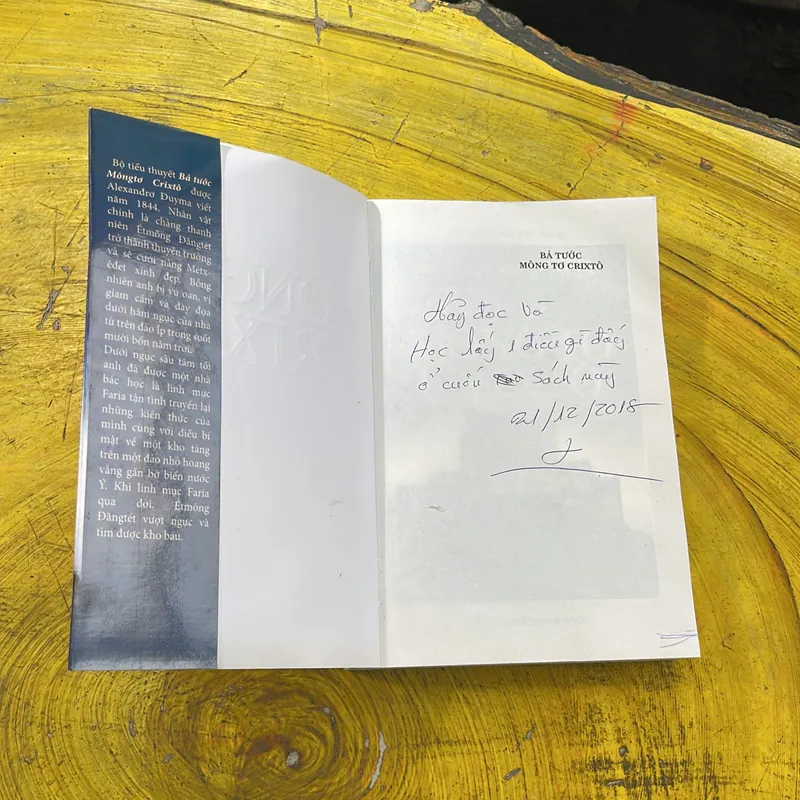 Bộ tiểu thuyết Bá tước
Môngtơ Crixtô được
Alexandrơ Đuyma viết
năm 1844. Nhân vật
chính là chàng thanh
niên Étmông Đăngtét
trở thành thuyền trưởng
và sẽ cưới nàng Métx-
êđet xinh đẹp. Bỗng
nhiên anh bị vu oan, vị
giam cầm và đầy đọa
dưới hầm ngục của nhà
tù trên đảo Íp trong suốt
mười bốn năm trời.
Dưới ngục sâu tăm tối
anh đã được một nhà
bác học là linh mục
Faria tận tình truyền lại
những kiến thức của
mình cùng với điều bí
mật về một kho tàng
trên một đảo nhỏ hoang
vắng gần bờ biển nước
Ý. Khi linh mục Faria
qua đời, Étmông
Đăngtét vượt ngục và
tìm được kho báu.
BÁ TƯỚC
MÔNG TƠ CRIXTÔ
Hãy đọc và
Học lấy 1 điều gì đấy
ở cuốn sách này
21/12/2018